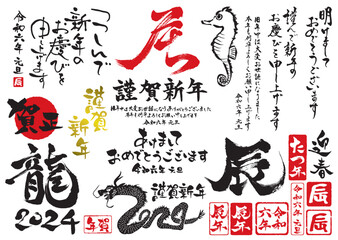 明けまして
おめでとうございます
謹んで新年の
お慶びを申し上げます
旧年中は大変お世話になりました
令和六年 元旦
辰
謹賀新年
旧年中は大変お世話になりありがとうございました
本年も何卒よろしくお願い申し上げます
令和六年 元旦
つつしんで
新年の
お慶びを
申し上げます
令和六年 元旦
辰
賀正
謹賀
新年
あけまして
おめでとうございます
令和六年 元旦
迎春
たつ年
令和六年 元旦
辰
辰
龍
2024
年賀
謹賀新年
2024
辰
辰年
辰年
令和
六年